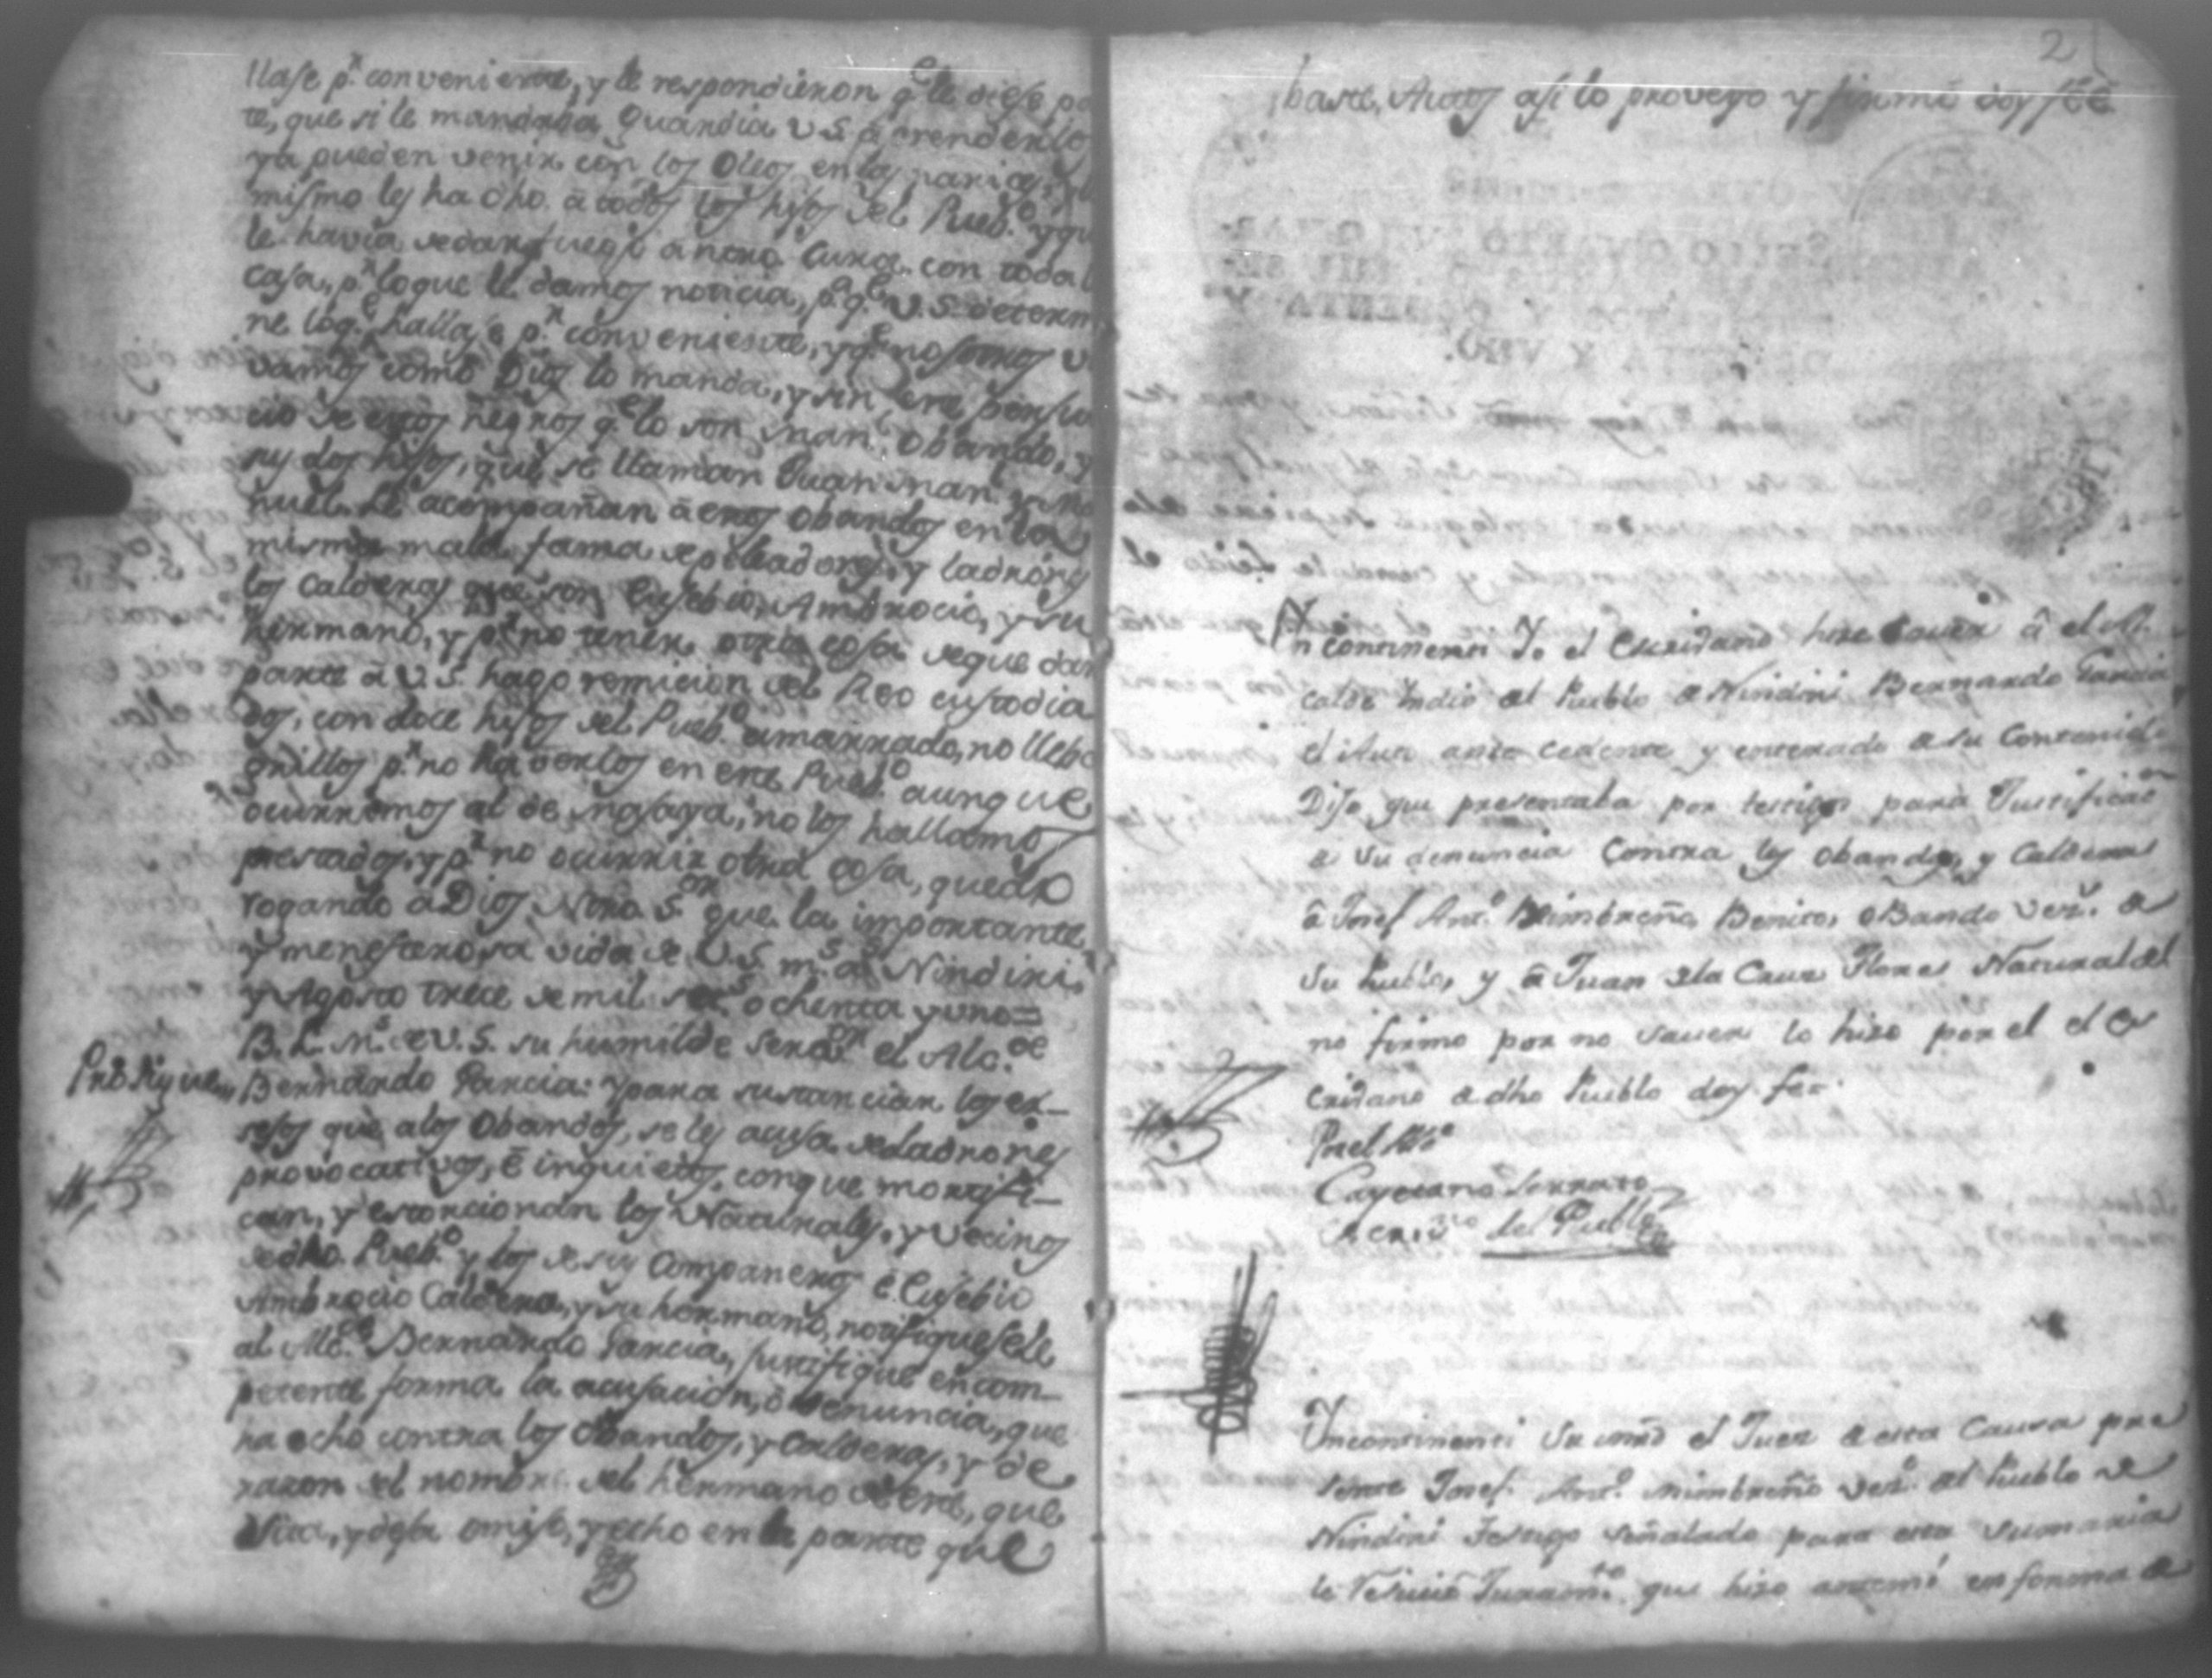 llase p.r conveniente, y le respondieron q.e le diese pa
te, que si le mandaba Guardia U.S. a prenderlo
ya pueden venir con los Oleos en las narices, y lo
mismo les ha dho. a todos los hijos del Pueb.o y que
le havia de dar fuego a ntro. Cura con toda
casa, p.r lo que le damos noticia, p.a q.e U.S. determ
ne lo q.e hallase p.r conveniente, y q.e nosotros v
vamos como Dios lo manda, y sin este
cio de estos negros q.e lo son Man.l Obando, y
sus dos hijos, que se llaman Juan Man.l y Ma
nuel. Le acompañan a estos Obandos en la
misma mala fama de peleadores, y ladrones
los Calderas que son Eusebio, Ambrocio, y su
hermano, y p.r no tener otra cosa de que dar
parte a U.S. hago remicion del Reo custodia
do, con doce hijos del Pueb.o amarrado, no llebo
grillos p.r no haverlos en este Pueb.o aunque
ocurrimos al de Masaya, no los hallamos
prestados, y p.r no ocurrir otra cosa, quedo
rogando a Dios Ntro. S.or que la importante
y menesterosa vida de U.S. m.s a.s Nindiri,
y Agosto trece de mil set.s ochenta y uno=
B. L. M.s de U.S. su humilde serv.or el Alc.de
Prosigue,, Bernardo Garcia: Y para sustanciar los ex-
sesos que a los Obandos, se les acusa de ladrones
provocativos, é inquietos, con que mortifi-
can, y estorcionan los Naturales, y vecinos
de dho. Pueb.o y los de sus Companeros é Eusebio
Ambrocio Caldera, y su hermano, notifiquesele
al Alc.de Bernardo Garcia, justifique en com-
petente forma la acusacion, ó denuncia, que
ha echo contra los Obandos, y Calderas, y de
razon del nombre del hermano de este, que
Cita, y deja omiso, y echo en la parte que
2
baste, Autos asi lo proveyo y firmó doy feé
SELLO QVARTO
Yn continenti Yo el Escrivano hize saver â el Al
calde Indio del Pueblo de Nindiri Bernardo Garcia
el Auto ante cedente y enterado de su Contenido
Dijo, que presentaba por testigos para Justificac.on
de su denuncia Contra los Obandos, y Calderas
â Josef Ant.o Mimbreño, Benito, Obando Vez.s de
su Pueblo, y â Juan de la Cruz Flores Natural del
no firmo por no saver lo hizo por el el Es
crivano de dho Pueblo doy fee.
Cayetano Serrato
Escriv.no del Pueblo
Yncontinenti Su mrd el Juez de esta Causa pre
sente Josef Ant.o Mimbreño Vez.o del Pueblo de
Nindiri Testigo señalado para esta Sumaria
le Resivió Juram.to que hizo antemi en forma de